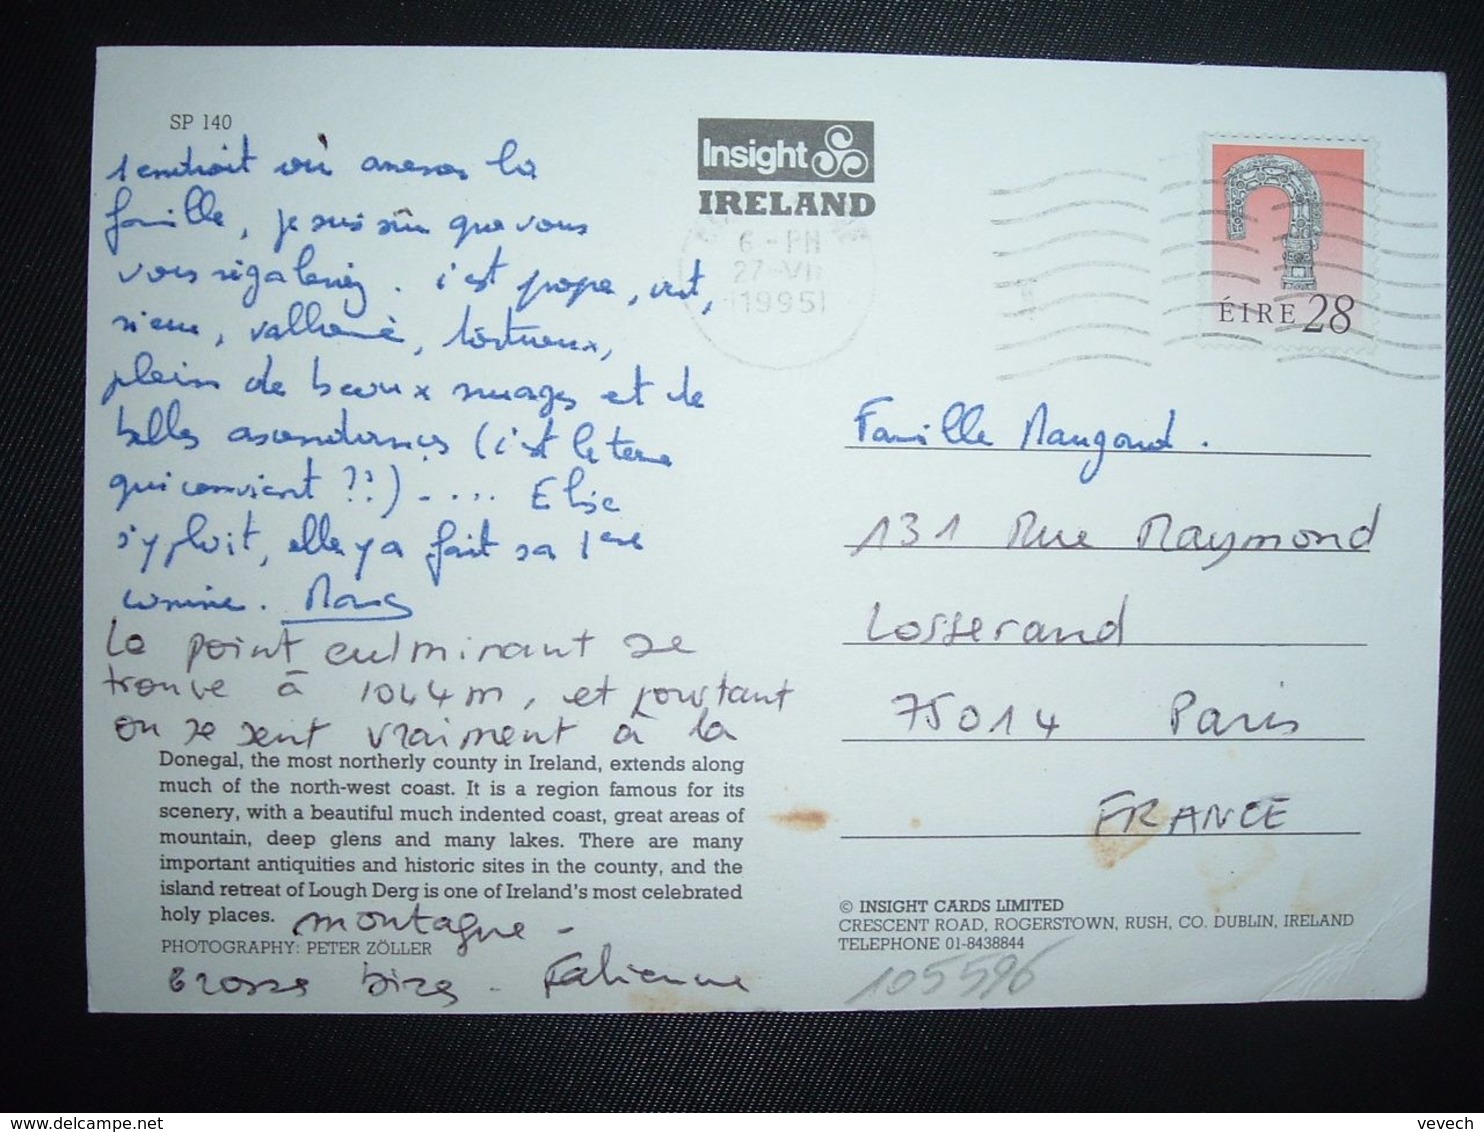 SP 140
l'endroit où amener la
famille, je suis sûr que vous
vous régaleriez. c'est propre, vert,
vallonné, tortueux,
plein de beaux nuages et de
belles ascendances (c'est le terme
qui convient ??) ..... Elise
s'y plait, elle y a fait sa 1ère
Le point culminant se
trouve à 1044m, et pourtant
on se sent vraiment à la
Donegal, the most northerly county in Ireland, extends along
much of the north-west coast. It is a region famous for its
scenery, with a beautiful much indented coast, great areas of
mountain, deep glens and many lakes. There are many
important antiquities and historic sites in the county, and the
island retreat of Lough Derg is one of Ireland's most celebrated
holy places.
montagne -
PHOTOGRAPHY: PETER ZÖLLER
Grosses bises - Fabienne
Insight
IRELAND
6 - PM
27-VII
1995
ÉIRE 28
Famille Maugard.
131 Rue Raymond
Losserand
75014 Paris
FRANCE
© INSIGHT CARDS LIMITED
CRESCENT ROAD, ROGERSTOWN, RUSH, CO. DUBLIN, IRELAND
TELEPHONE 01-8438844
105596
vevech